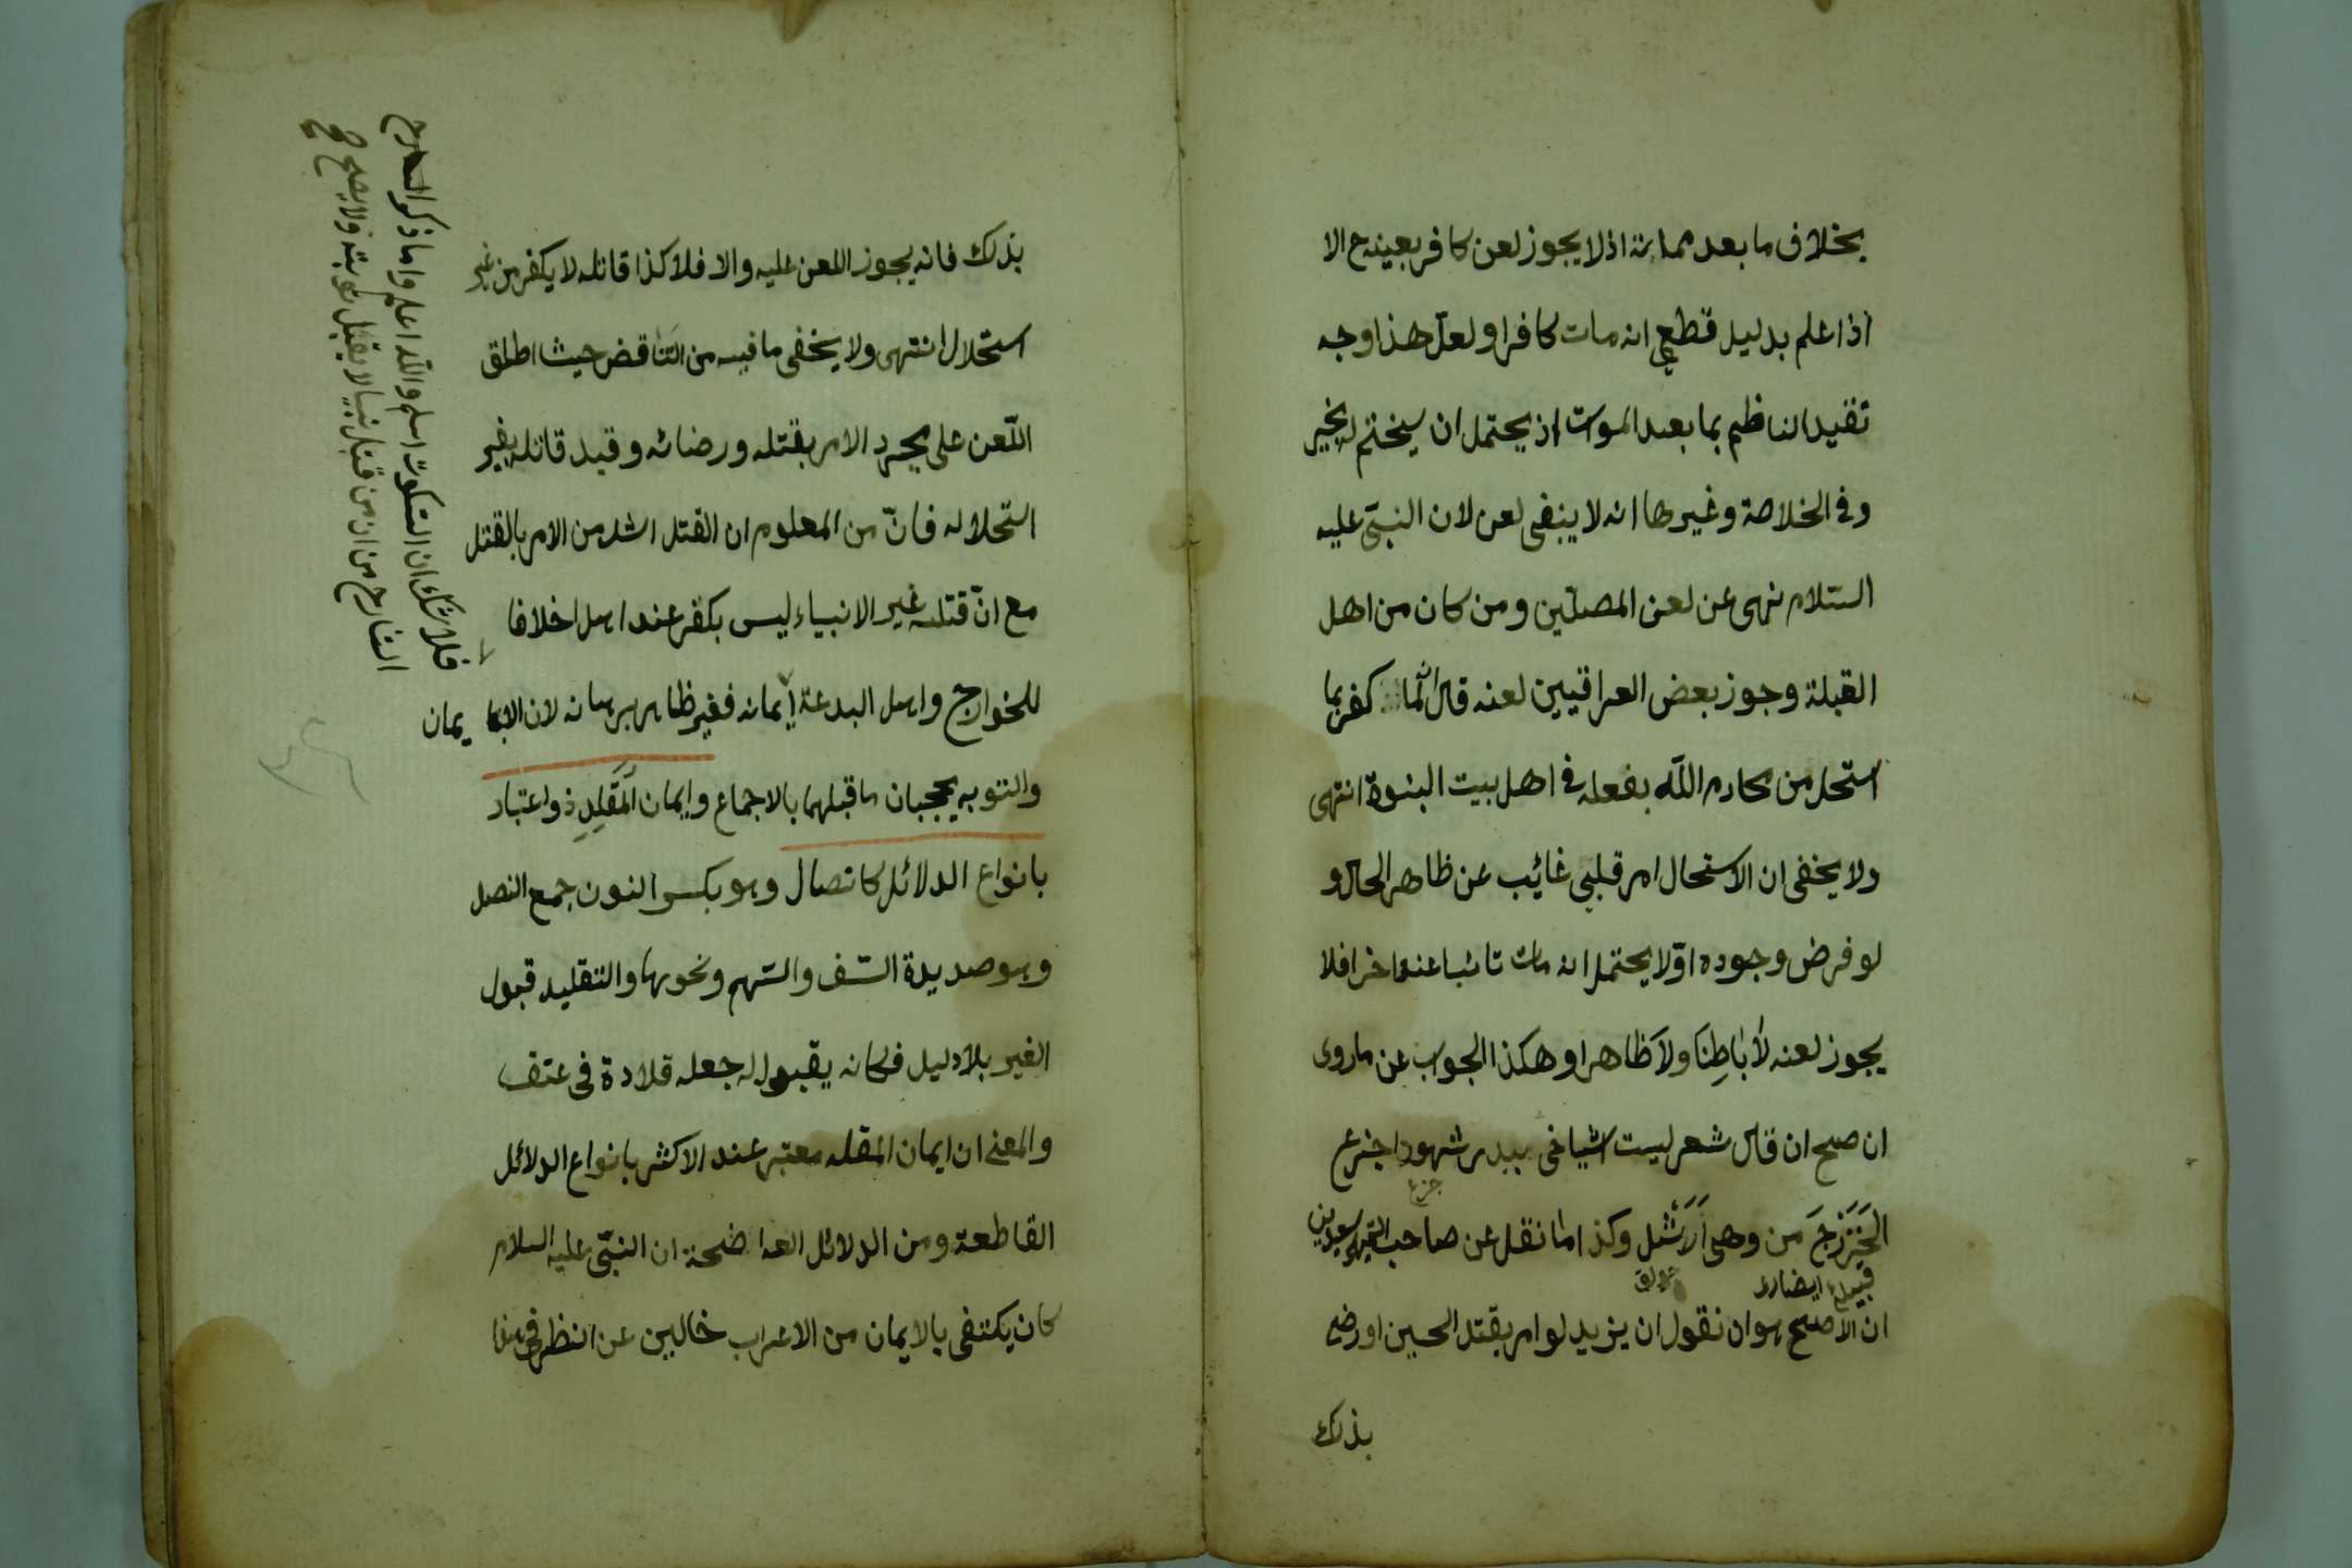 بخلاف ما بعد مماته اذ لا يجوز لعن كافر بعينه ح الا
اذا علم بدليل قطعي انه مات كافرا ولعل هذا وجه
تقيد الناظم بما بعد الموت اذ يحتمل ان يختم له بخير
وفي الخلاصة وغيرها انه لا ينبغي لعن لان النبيّ عليه
السّلام نهى عن لعن المصلّين ومن كان من اهل
القبلة وجوز بعض العراقيين لعنه قال لما كفر بما
استحل من محارم اللّه بفعله في اهل بيت النبوة انتهى
ولا يخفى ان الاستحال امر قلبي غائب عن ظاهر الحال و
لو فرض وجوده اوّلا يحتمل انه مات تائبا عنه اخرا فلا
يجوز لعنه لا بَاطِنًا ولا ظاهرا وهكذا الجواب عن ما روى
ان صح ان قال شعر ليت اشياخي ببدر شهودا جزع
جزع
الخَزَرْجَ من وقع الاسل وكذا ما نقل عن صاحب التمهيد من
قبيلة انصارى
ان الاصح هو ان نقول ان يزيد لو امر بقتل الحسين او رضي
بذلك
بذلك فانه يجوز اللعن عليه والا فلا كذا قاتله لا يكفر من غير
استحلال انتهى ولا يخفى ما فيه من التناقض حيث اطلق
اللّعن على مجرد الامر بقتله ورضائه وقيد قاتله بغير
استحلاله فانّ من المعلوم ان القتل اشد من الامر بالقتل
مع انّ قتله غير الانبياء ليس بكفر عند اهل خلافا
للخوارج واهل البدعة ايمانه فغير ظاهر برهانه لان الايمان
والتوبه يججبان ما قبلهما بالاجماع وايمان المُقَلِدِ ذو اعتبار
بانواع الدلائل كانصال وهو بكسر النون جمع النصل
وهو صديدة السّيف والسّهم ونحوها والتقليد قبول
الغير بلا دليل فكانه يقبوله جعله قلادة في عتقه
والمعنى ان ايمان المقلد معتبر عند الاكثر بانواع الدلائل
القاطعة ومن الدلائل الواضحة ان النبيّ عليه السلام
كان يكتفى بالايمان من الاعراب خالين عن النظر في هذا
فلا شك ان السّكوت اسلم واللّه اعلم واما ذكر الشارح
الشارح من ان من قتل نبيا لا يقبل توبته ولا يصح